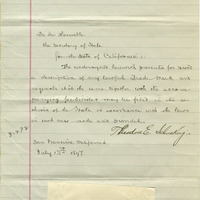 To the Honorable
the Secretary of State
for the State of California:
The undersigned herewith presents for record
a description of my lawful Trade Mark and
requests that the same together with the accom-
panying facsimiles may be filed in the ar-
chives of the State in accordance with the laws
in such case made and provided.
Theodore E.
San Francisco California
July 12th 1897